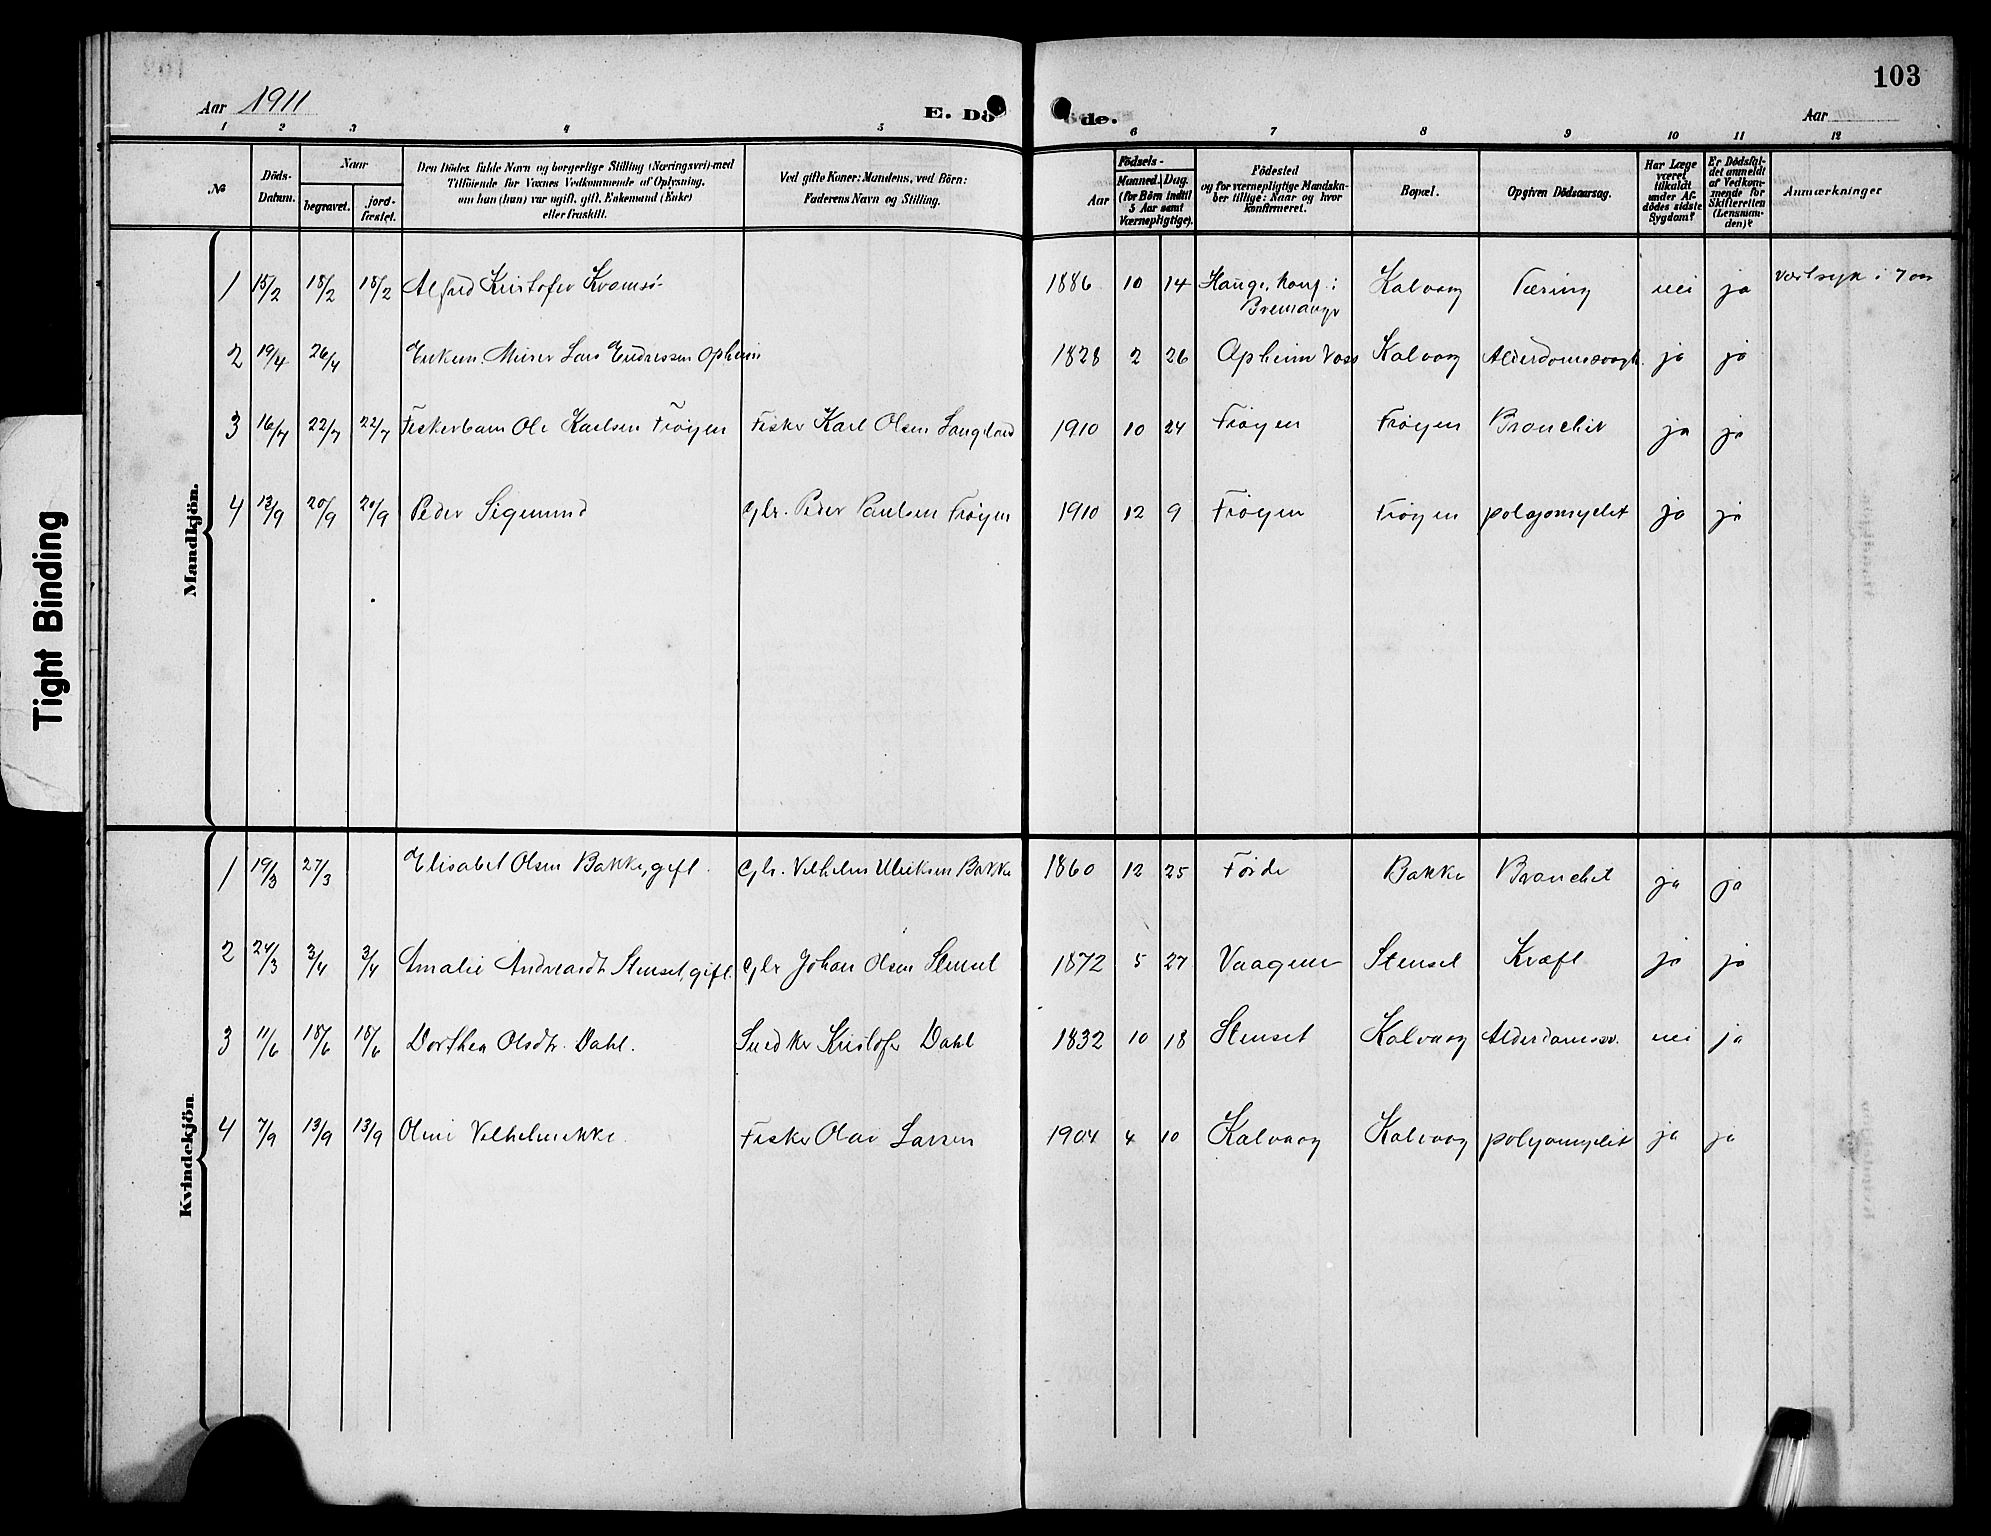 103
Aar 1911
E. Dö de.
Aar
1 2 3 4 5 6 7 8 9 10 11 12
№
Döds-Datum.
Naar
begravet.
jord-fæstet.
Den Dödes fulde Navn og borgerlige Stilling (Næringsvei) med
Tilföiende for Voxnes Vedkommende af Oplysning,
om han (hun) var ugift, gift, Enkemand (Enke)
eller fraskilt.
Ved gifte Koner: Mandens, ved Börn:
Faderens Navn og Stilling.
Födsels-
Aar
Maaned. Dag.
(for Börn indtil
5 Aar samt
Værnepligtige).
Födested
og for værnepligtige Mandska-
ber tillige: Naar og hvor
Konfirmeret.
Bopæl.
Opgiven Dödsaarsag.
Har Læge
været
tilkaldt
under Af-
dödes sidste
Sygdom?
Er Dödsfal-
det anmeldt
af Vedkom-
mende for
Skifteretten
(Lensman-
den)?
Anmærkninger
Mandkjön.
1 15/2 18/2 18/2 Alfred Kristofer Kramsö 1886 10 14 Hauge, konf. i Kalvaag Tæring nei ja i 7 
Bremanger
2 19/4 26/4 Enkem. Murer Lars Endressen Opheim 1828 2 26 Opheim Voss Kalvaag ja ja
3 16/7 22/7 22/7 Fiskerbarn Ole Karlsen Fröyen Fisker Karl Olsen 1910 10 24 Fröyen Fröyen Bronchit ja ja
4 13/9 20/9 20/9 Peder Sigmund Gbr. Peder Paulsen Fröyen 1910 12 9 Fröyen Fröyen polyomyelit ja ja
Kvindekjön
1 19/3 27/3 Elisabet Olsen Bakke, gift. Gbr. Vilhelm Ulriksen Bakke 1860 12 25 Förde Bakke Bronchit ja ja
2 24/3 3/4 3/4 Amalie Andreasdt. Stenset, gift. Gbr. Johan Olsen Stenset 1872 5 27 Vaagene Stenset Kræft ja ja
3 11/6 18/6 18/6 Dorthea Olsdtr. Dahl. Snedker Kristofer Dahl 1832 10 18 Stenset Kalvaag Alderdomssv. nei ja
4 7/9 13/9 13/9 Oline Vilhelmikke Fisker Olai Larsen 1904 4 10 Kalvaag Kalvaag polyomyelit ja ja
Tight Binding